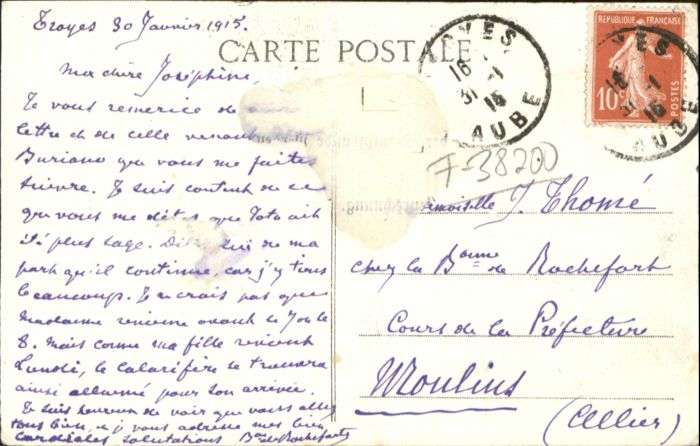 Troyes 30 Janvier 1915.
CARTE POSTALE
Ma chère Joséphine,
Je vous remercie de
lettre et de celle venant
Buriano que vous me faites
suivre. Je suis content de ce
que vous me dites que Toto ait
été plus sage. Dites lui de ma
part qu'il continue, car j'y tiens
beaucoup. Je ne crois pas que
Madame revienne avant le
8. Mais comme ma fille revient
Lundi, le calorifère se trouvera
ainsi allumé pour son arrivée.
Je suis heureux de voir que vous allez
tous bien, et je vous adresse mes bien
cordiales salutations Bon de Rochefort
TROYES
16
31 - 1
15
AUBE
REPUBLIQUE FRANÇAISE
10
POSTES
YES
16
31 - 1
15
AUBE
7-38200
moiselle J. Thomé
chez la Bonne de Rochefort
Cours de la Préfecture
Moulins
(Allier)